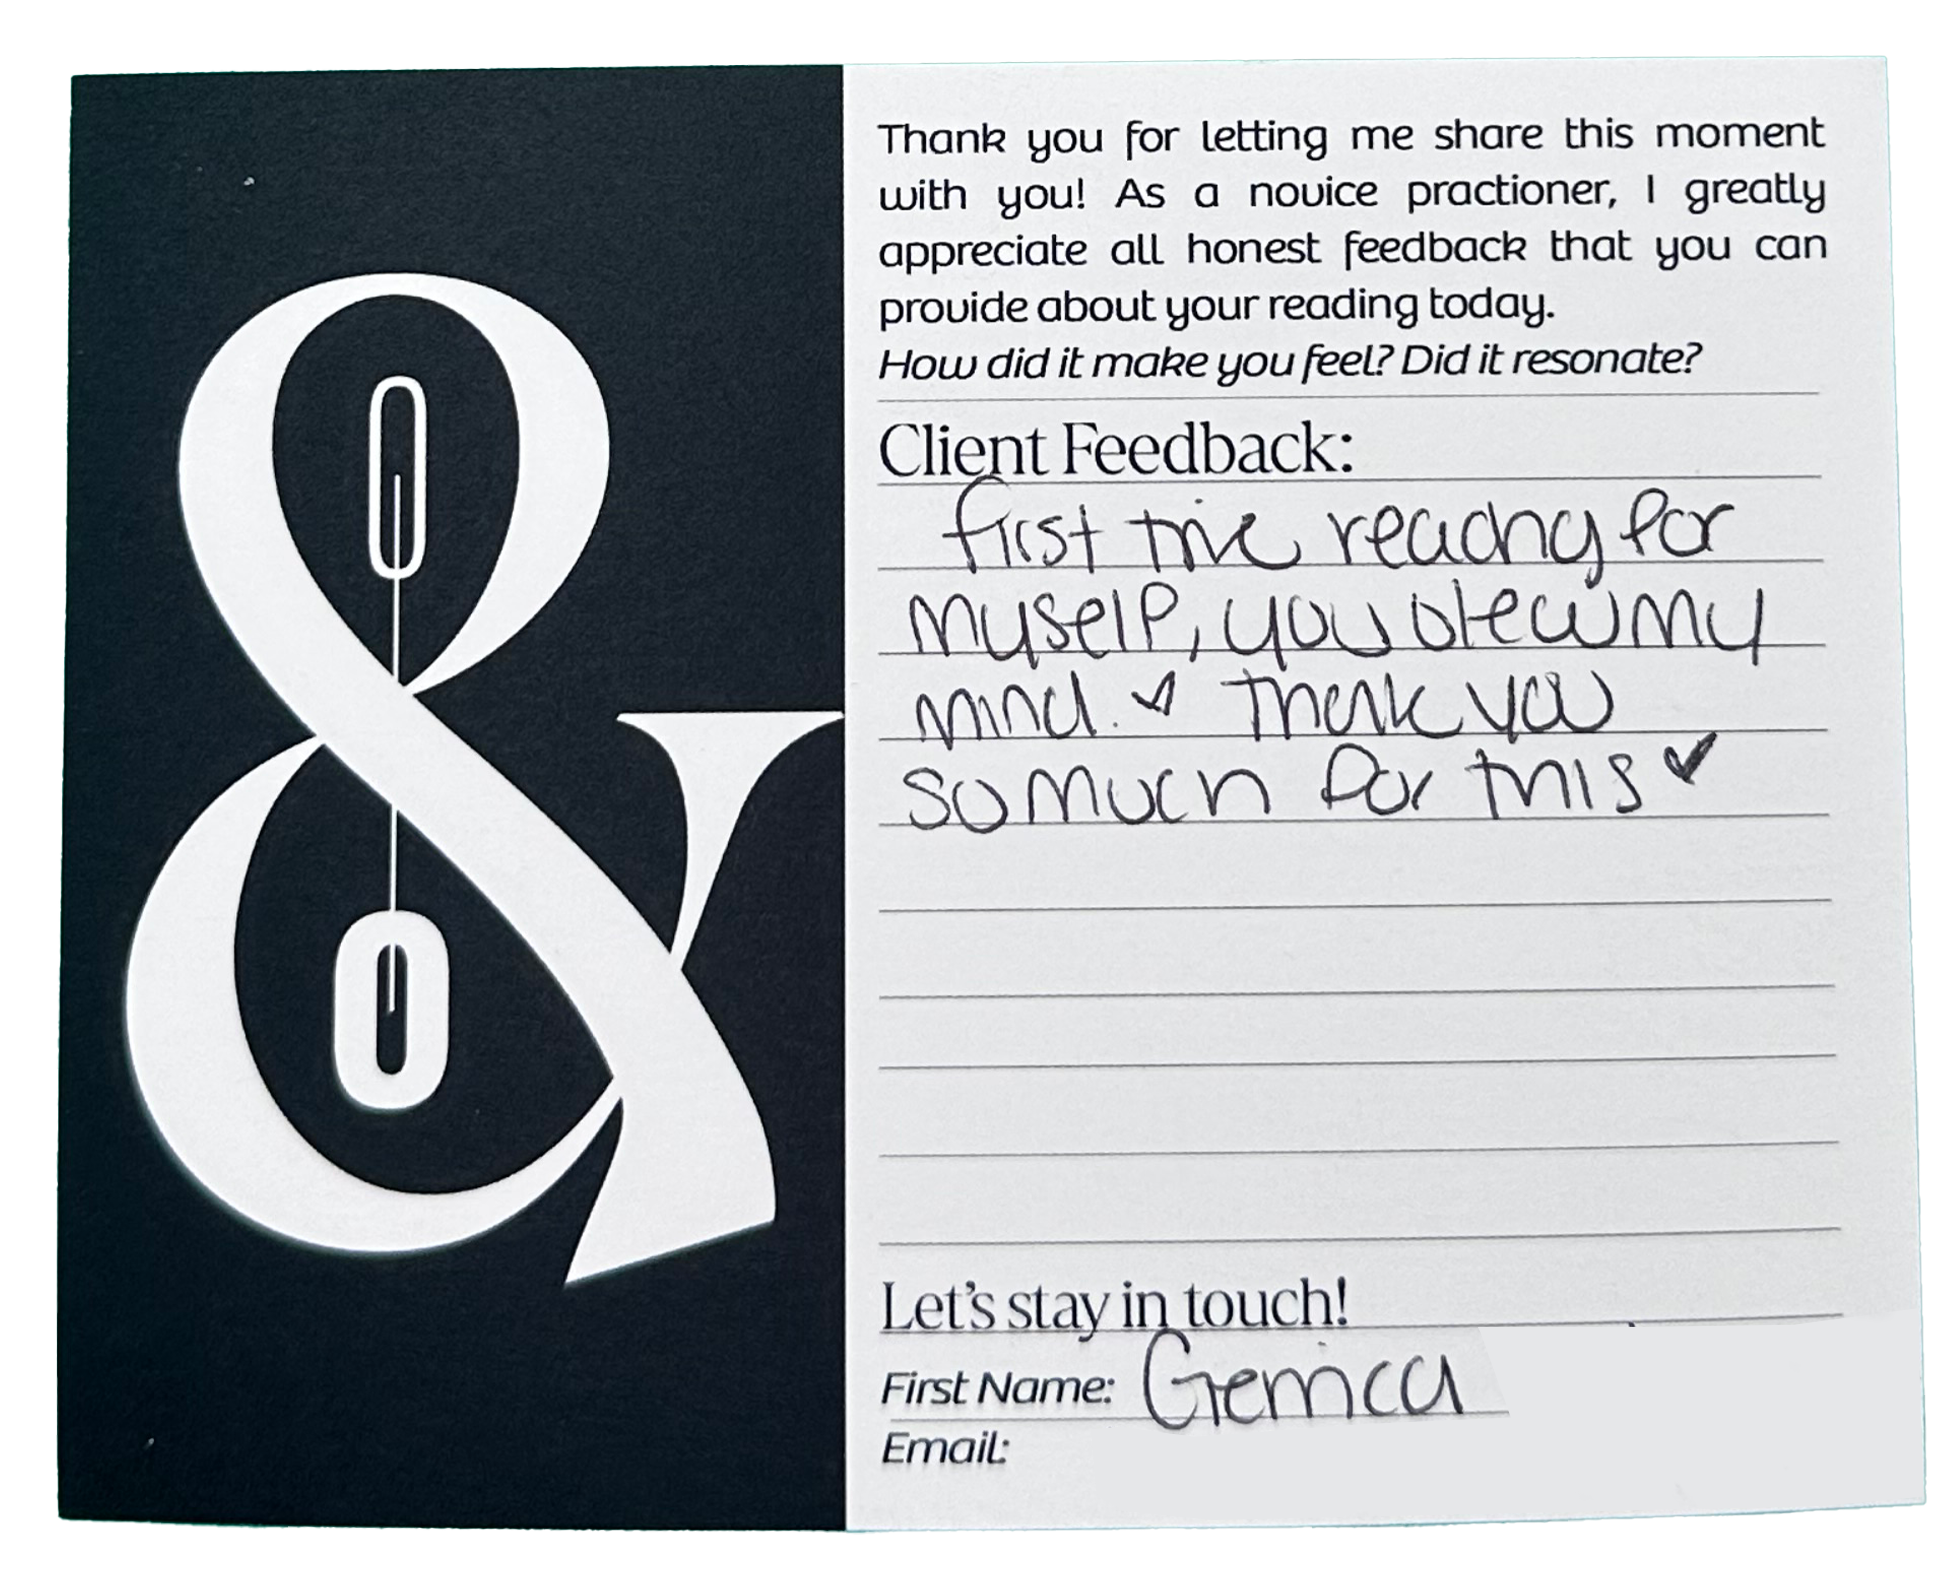 Thank you for letting me share this moment
with you! As a novice practioner, I greatly
appreciate all honest feedback that you can
provide about your reading today.
How did it make you feel? Did it resonate?
Client Feedback:
first time reading for
myself, you blew my
mind. Thank you
so much for this
Let's stay in touch!
First Name: Gemica
Email:
&